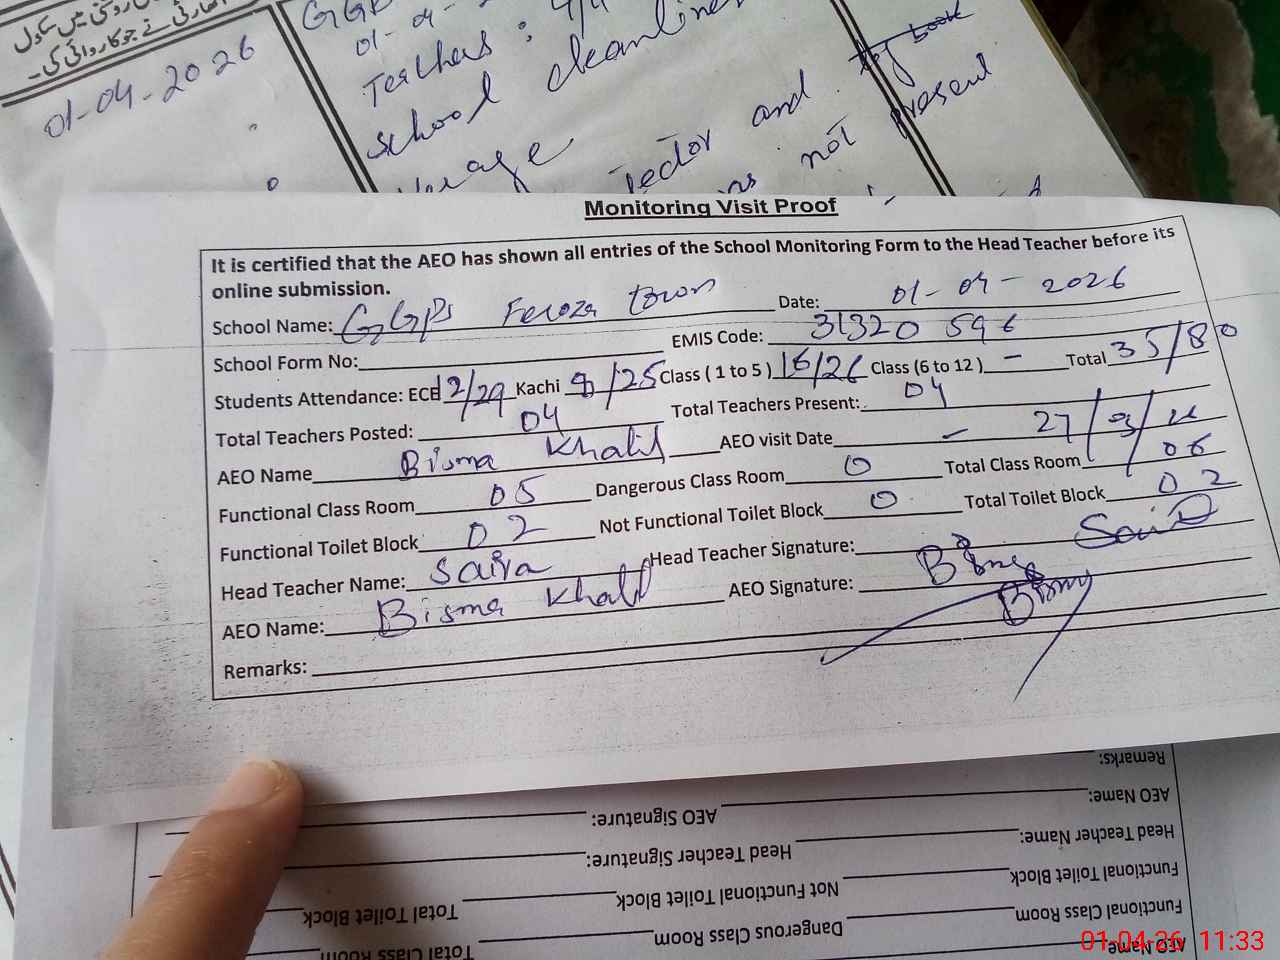 01-04-2026
01-04-2
Teachers : 4/4
School cleanliness
and
was not present
Monitoring Visit Proof
It is certified that the AEO has shown all entries of the School Monitoring Form to the Head Teacher before its
online submission.
School Name: GGPS Feroza Town Date: 01-04-2026
School Form No: EMIS Code: 31320 596
Students Attendance: ECE 12/29 Kachi 8/25 Class ( 1 to 5 ) 16/26 Class (6 to 12 ) — Total 35/80
Total Teachers Posted: 04 Total Teachers Present: 04
AEO Name Bisma Khalil AEO visit Date 27/03/
Functional Class Room 05 Dangerous Class Room 0 Total Class Room 06
Functional Toilet Block 02 Not Functional Toilet Block 0 Total Toilet Block 02
Head Teacher Name: Saira Head Teacher Signature:
AEO Name: Bisma Khalil AEO Signature:
Remarks:
Remarks:
AEO Name: AEO Signature:
Head Teacher Name: Head Teacher Signature:
Functional Toilet Block Not Functional Toilet Block Total Toilet Block
Functional Class Room Dangerous Class Room Total Class Room
AEO Name
01-04-26 11:33